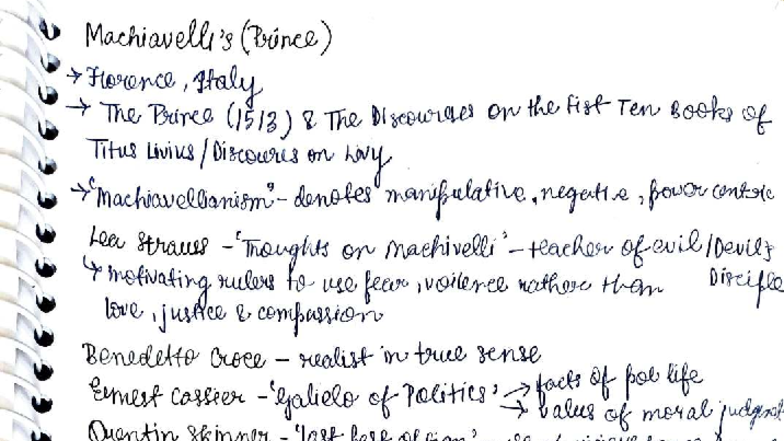 Machiavelli's (Prince)
→ Florence, Italy
→ The Prince (1513) & The Discourses on the Fist Ten Books of
Titus Livius / Discoures on Livy
→ 'Machiavellianism' - denotes manipulative, negative, power centric
Leo Strauss - 'Thoughts on Machivelli' - teacher of evil / Devil's
Disciple
↳ motivating rulers to use fear, voilence rather than
love, justice & compassion
Benedetto Croce - realist in true sense
Ernest Cassier - 'Galielo of Politics' → facts of pol life
→ values of moral judgment
Quentin Skinner -